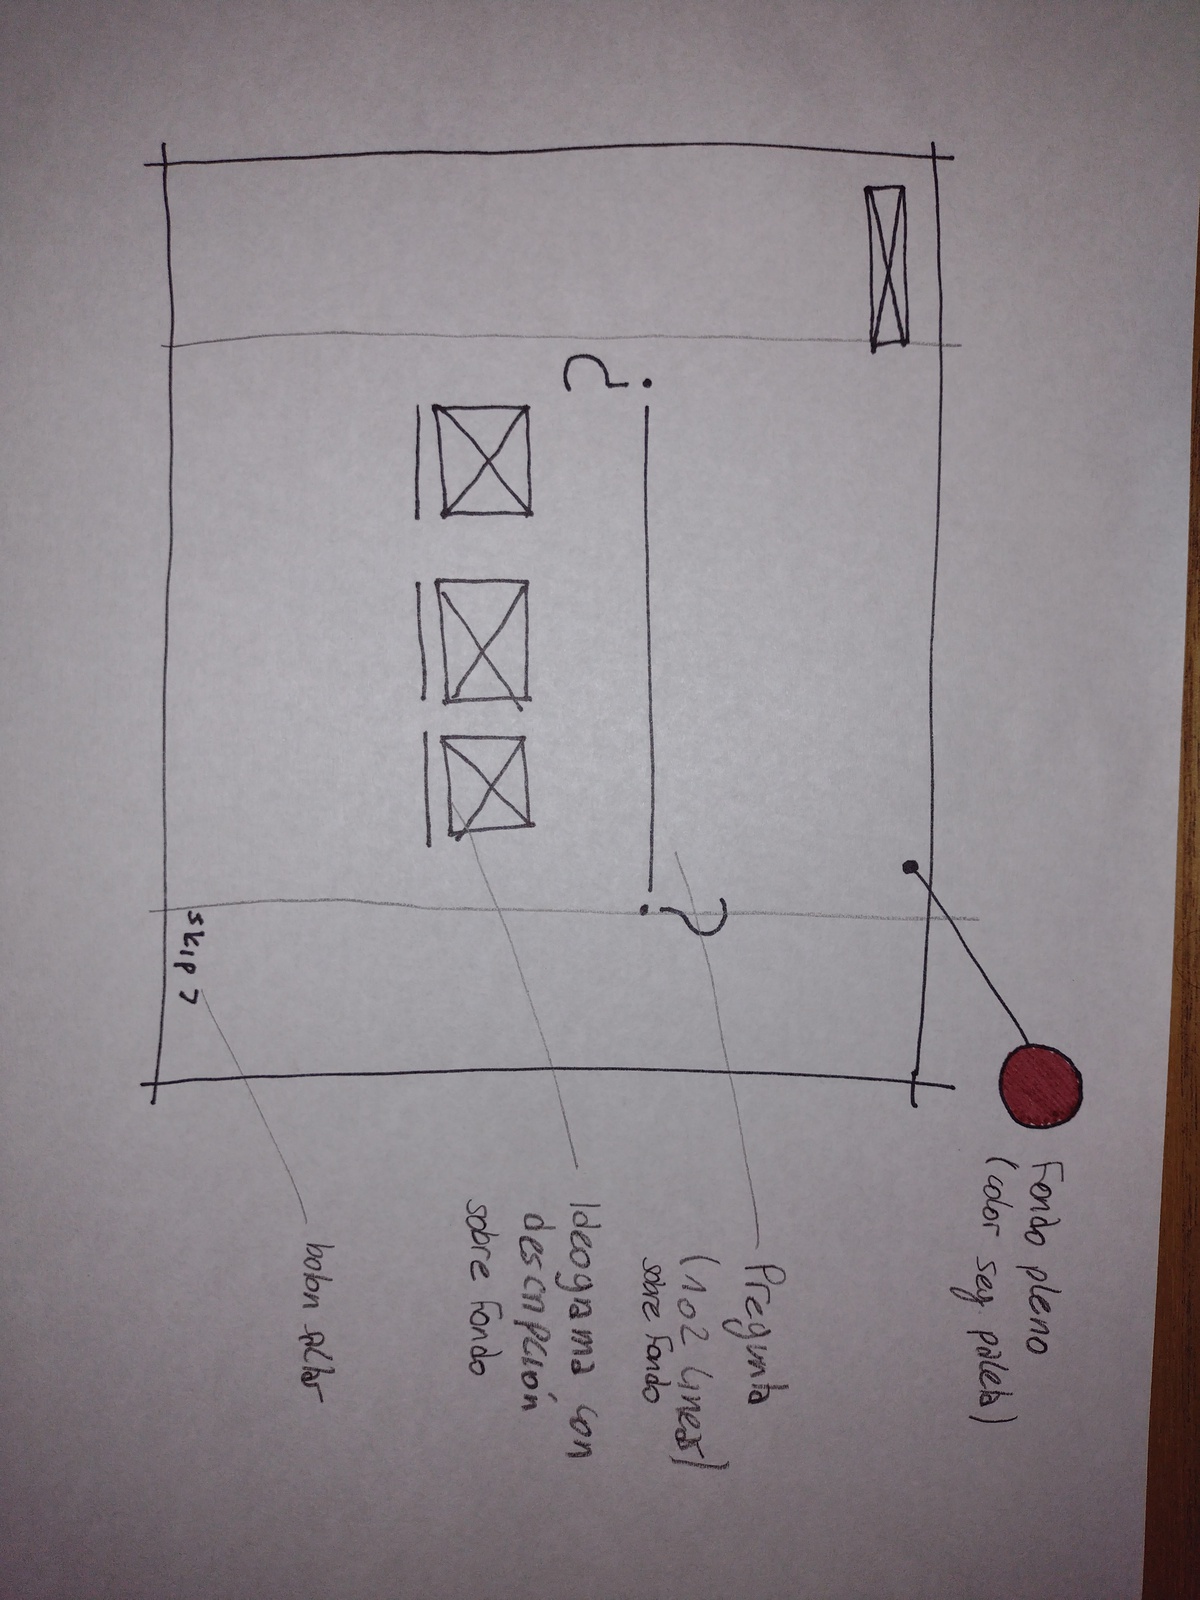 ¿ ?
skip >
Fondo pleno
(color seg. paleta)
Pregunta
(1 o 2 lineas)
sobre fondo
Ideograma con
descripción
sobre fondo
boton